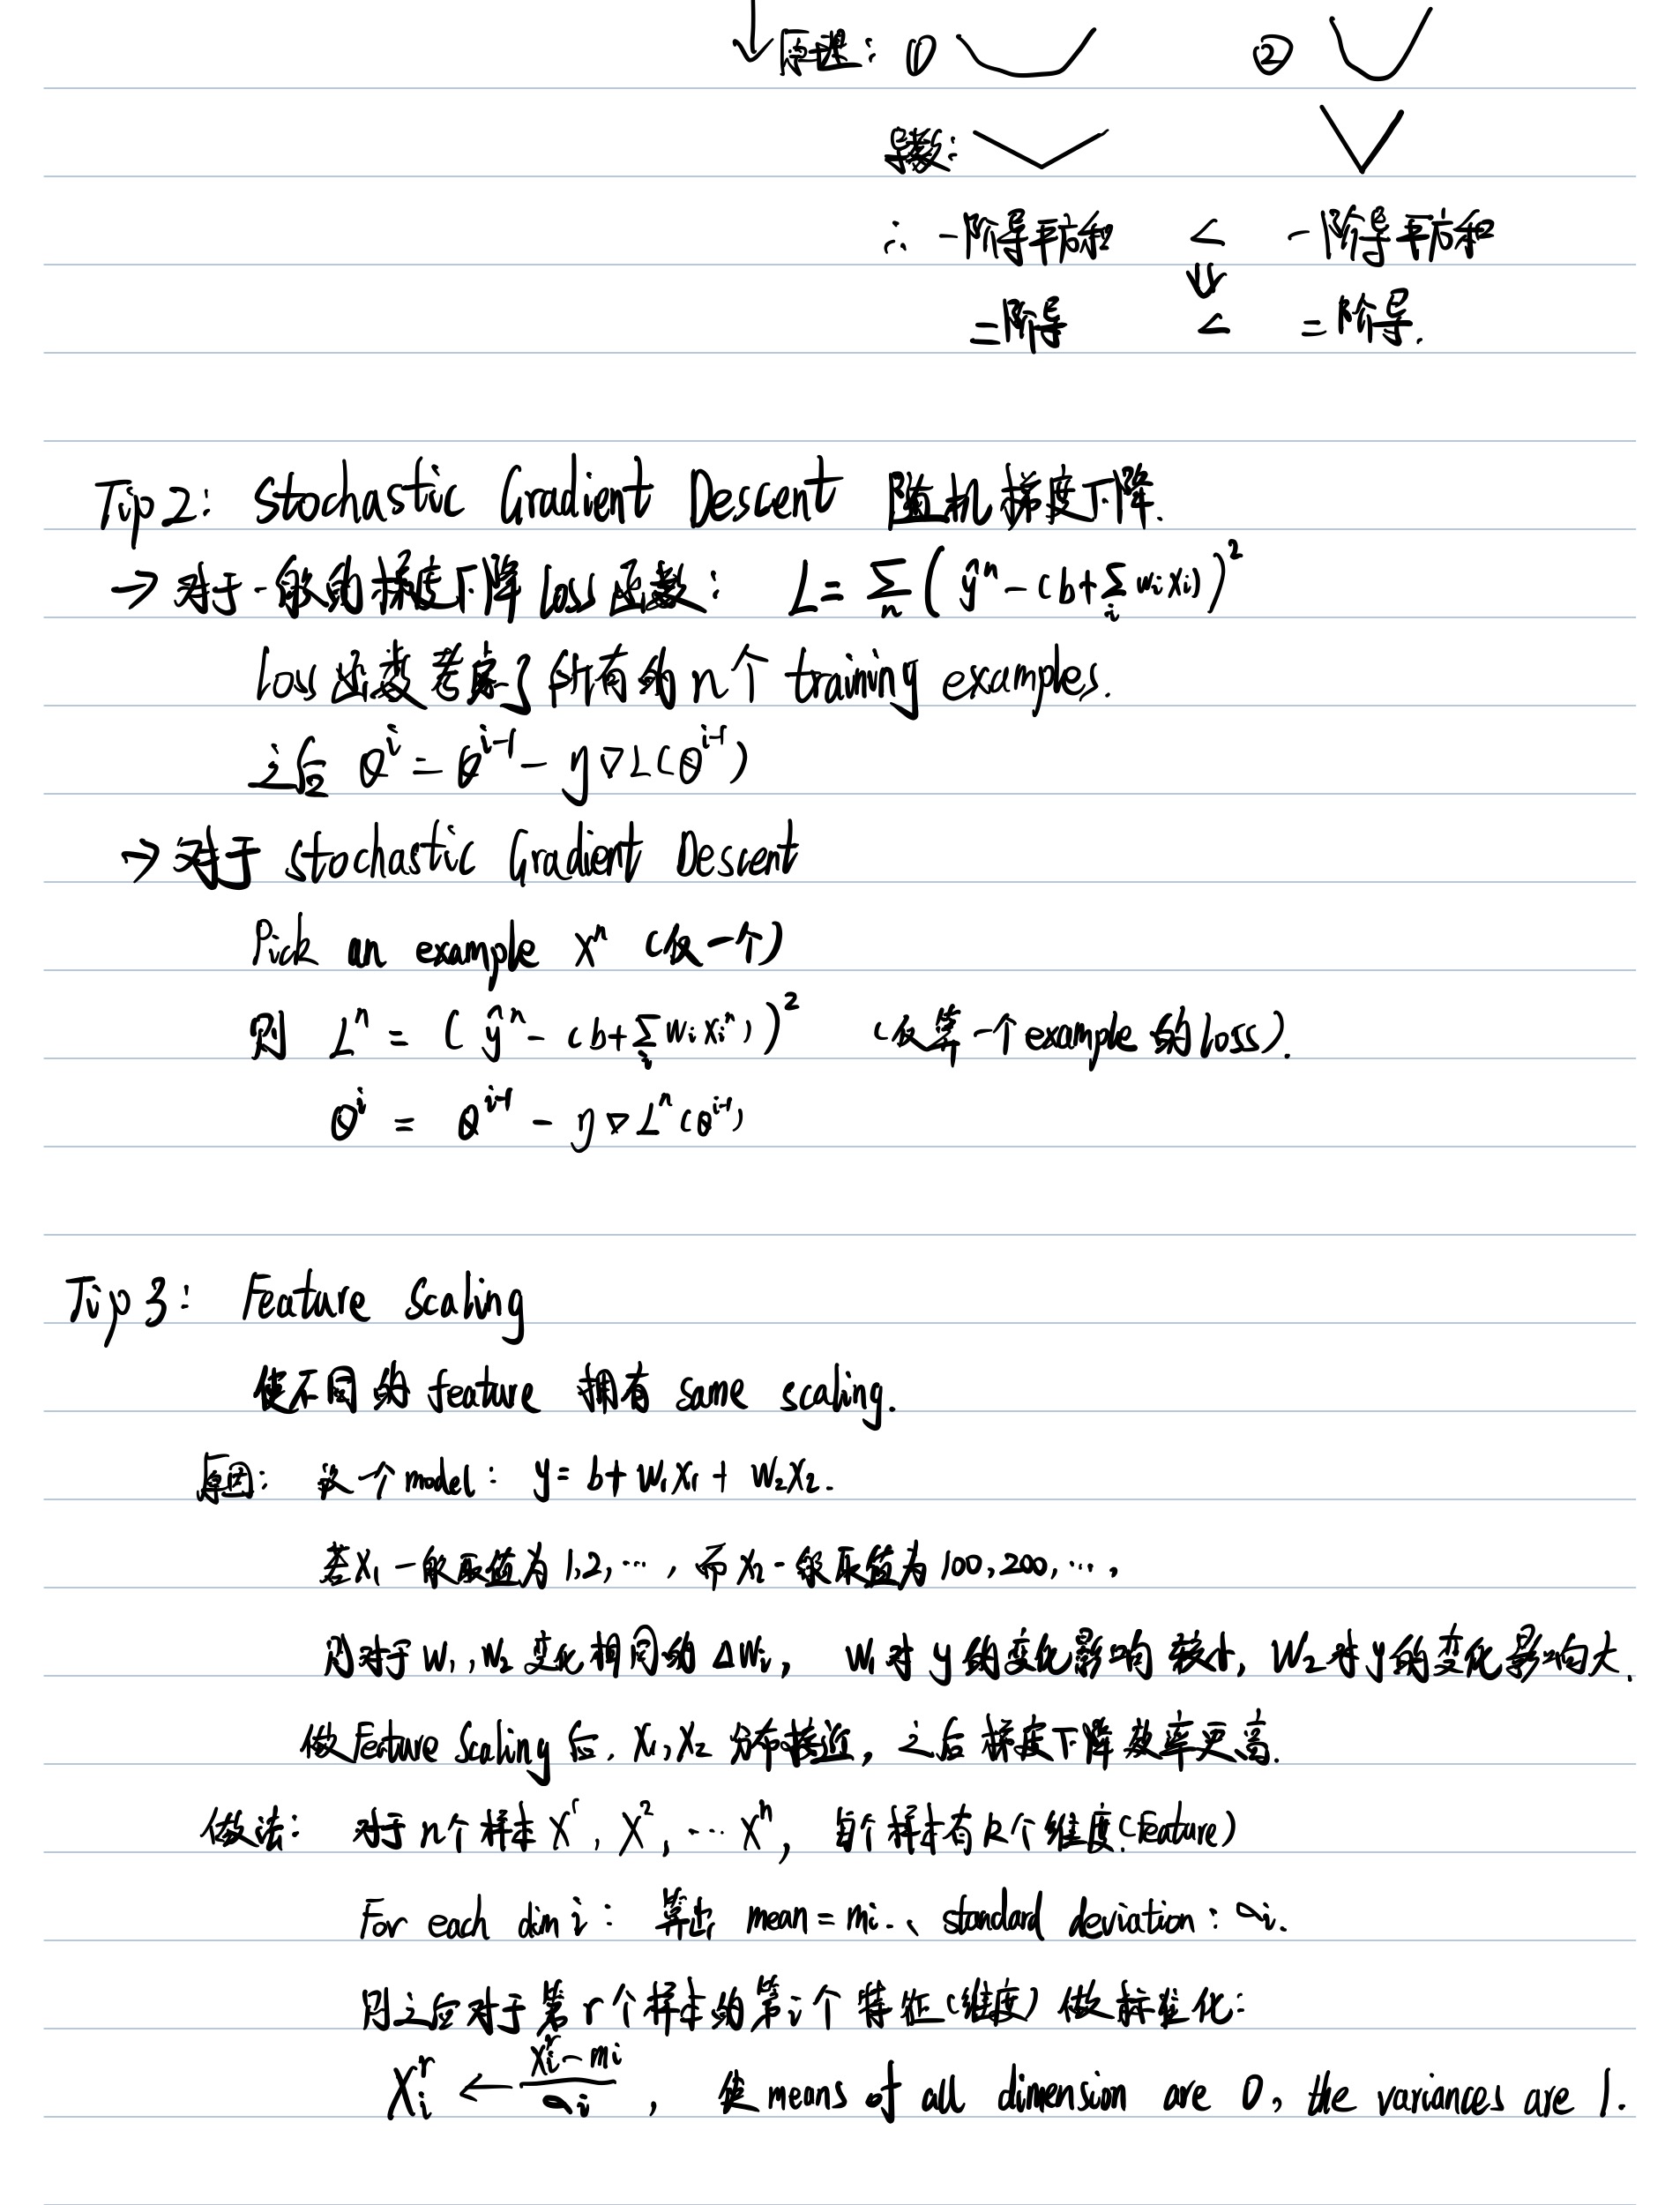 原理: ① ②
导数:
∴ 一阶导平方和 < 一阶导平方和
⇓
二阶导 < 二阶导.
Tip2: Stochastic Gradient Descent 随机梯度下降.
→ 对于一般的梯度下降 loss 函数: L = Σ_n ( ŷ^n - (b+Σ_i w_i x_i) )^2
loss 函数考虑了所有的 n个 training examples.
之后 θ^i = θ^{i-1} - η∇L(θ^{i-1})
→ 对于 Stochastic Gradient Descent
Pick an example x^n (仅一个)
则 L^n = ( ŷ^n - (b+Σ_i w_i x_i^n) )^2 (仅算一个example的loss).
θ^i = θ^{i-1} - η∇L^n(θ^{i-1})
Tip3: Feature Scaling
使不同的 feature 拥有 same scaling.
原因: 这个model: y = b + w₁x₁ + w₂x₂.
若x₁一般取值为1,2,…, 而x₂一般取值为100,200,…,
则对于w₁,w₂变化相同的Δw_i, w₁对y的变化影响较小, w₂对y的变化影响大.
做Feature Scaling后, x₁,x₂分布接近, 之后梯度下降效率更高.
做法: 对于n个样本 x^1, x^2, … x^n, 每个样本有k个维度(feature)
For each dim i: 算出 mean = m_i、standard deviation: σ_i.
则之后对于第r个样本的第i个特征(维度)做标准化:
x_i^r ← (x_i^r - m_i)/σ_i, 使 means of all dimension are 0, the variances are 1.